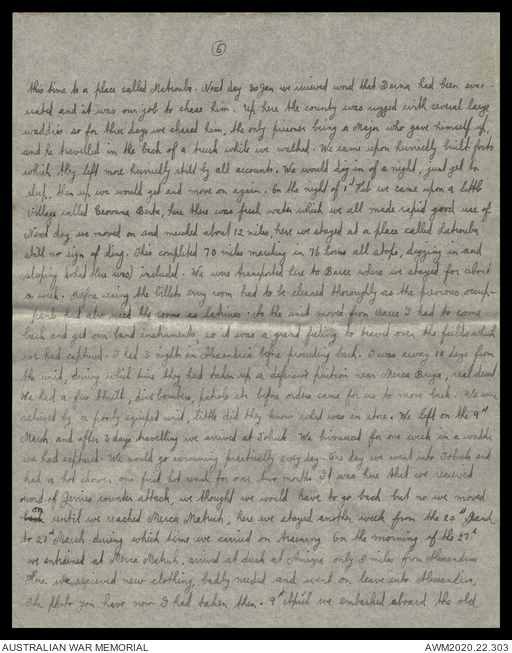 6
this time to a place called Matrouba. Next day 30 Jan we received word that Derna had been evac-
uated and it was our job to chase him. Up here the county was rugged with several large
waddies so for three days we chased him, the only prisoner being a Major who gave himself up,
and he travelled in the back of a truck while we walked. We came upon hurriedly built forts
which they left more hurriedly still by all accounts. We would dig in of a night, just get to
sleep, then up we would get and move on again. On the night of 1st Feb we came upon a little
village called Geovana Berta, here there was fresh water which we all made rapid good use of
Next day we moved on and marched about 12 miles, here we stayed at a place called
still no sign of ding. This completed 70 miles marching in 76 hours all stops, digging in and
sleeping (what there was) included. We were transported here to Barce where we stayed for about
a week. Before using the billets every room had to be cleaned thoroughly as the previous occup-
ants had also used the rooms as latrines. As the unit moved from Barce I had to come
back and get our band instruments, so it was a grand feeling to travel over the fields which
we had captured. I had 3 nights in Alexandria before proceeding back. I was away 10 days from
the unit, during which time they had taken up a defensive position near Merca Brega, real desert
We had a few thrills, dive bombers, patrols etc before orders came for us to move back. We were
relieved by a poorly equiped unit, little did they know what was in store. We left on the 9th
March and after 3 days travelling we arrived at Tobruk. We bivouaced for one week in a waddy
we had captured. We would go swimming practically every day. One day we went into Tobruk and
had a hot shower, our first hot wash for over two months. It was here that we received
word of Jerries counter attack we thought we would have to go back but no we moved
on until we reached Mersa Matruh, here we stayed another week from the 20th March
to 27th March during which time we carried on training. On the morning of the 27th
we entrained at Mersa Matruh, arrived at dusk at Amirya only 8 miles from Alexandria
Here we received new clothing, badly needed and went on leave into Alexandria,
The photo you have now I had taken then. 9th April we embarked aboard the old
AUSTRALIAN WAR MEMORIAL
AWM2020.22.303